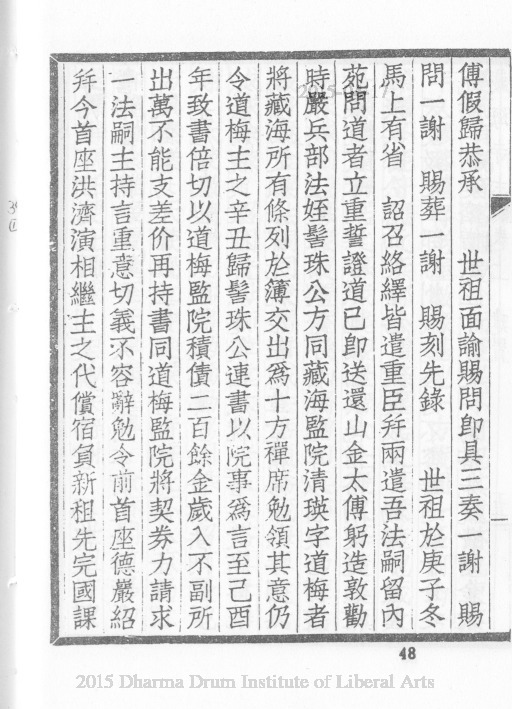 傅假歸恭承　　世祖面諭賜問卽具三奏一謝　賜
問一謝　賜葬一謝　賜刻先錄　　世祖於庚子冬
馬上有省　　詔召絡繹皆遣重臣幷兩遣吾法嗣留內
苑問道者立重誓證道已卽送還山金太傅躬造敦勸
時嚴兵部法姪髻珠公方同藏海監院清瑛字道梅者
將藏海所有條列於簿交出爲十方禪席勉領其意仍
令道梅主之辛丑歸髻珠公連書以院事爲言至己酉
年致書倍切以道梅監院積債二百餘金歲入不副所
出萬不能支差价再持書同道梅監院將契券力請求
一法嗣主持言重意切義不容辭勉令前首座德巖紹
幷今首座洪濟演相繼主之代償宿負新租先完國課
48
2015 Dharma Drum Institute of Liberal Arts